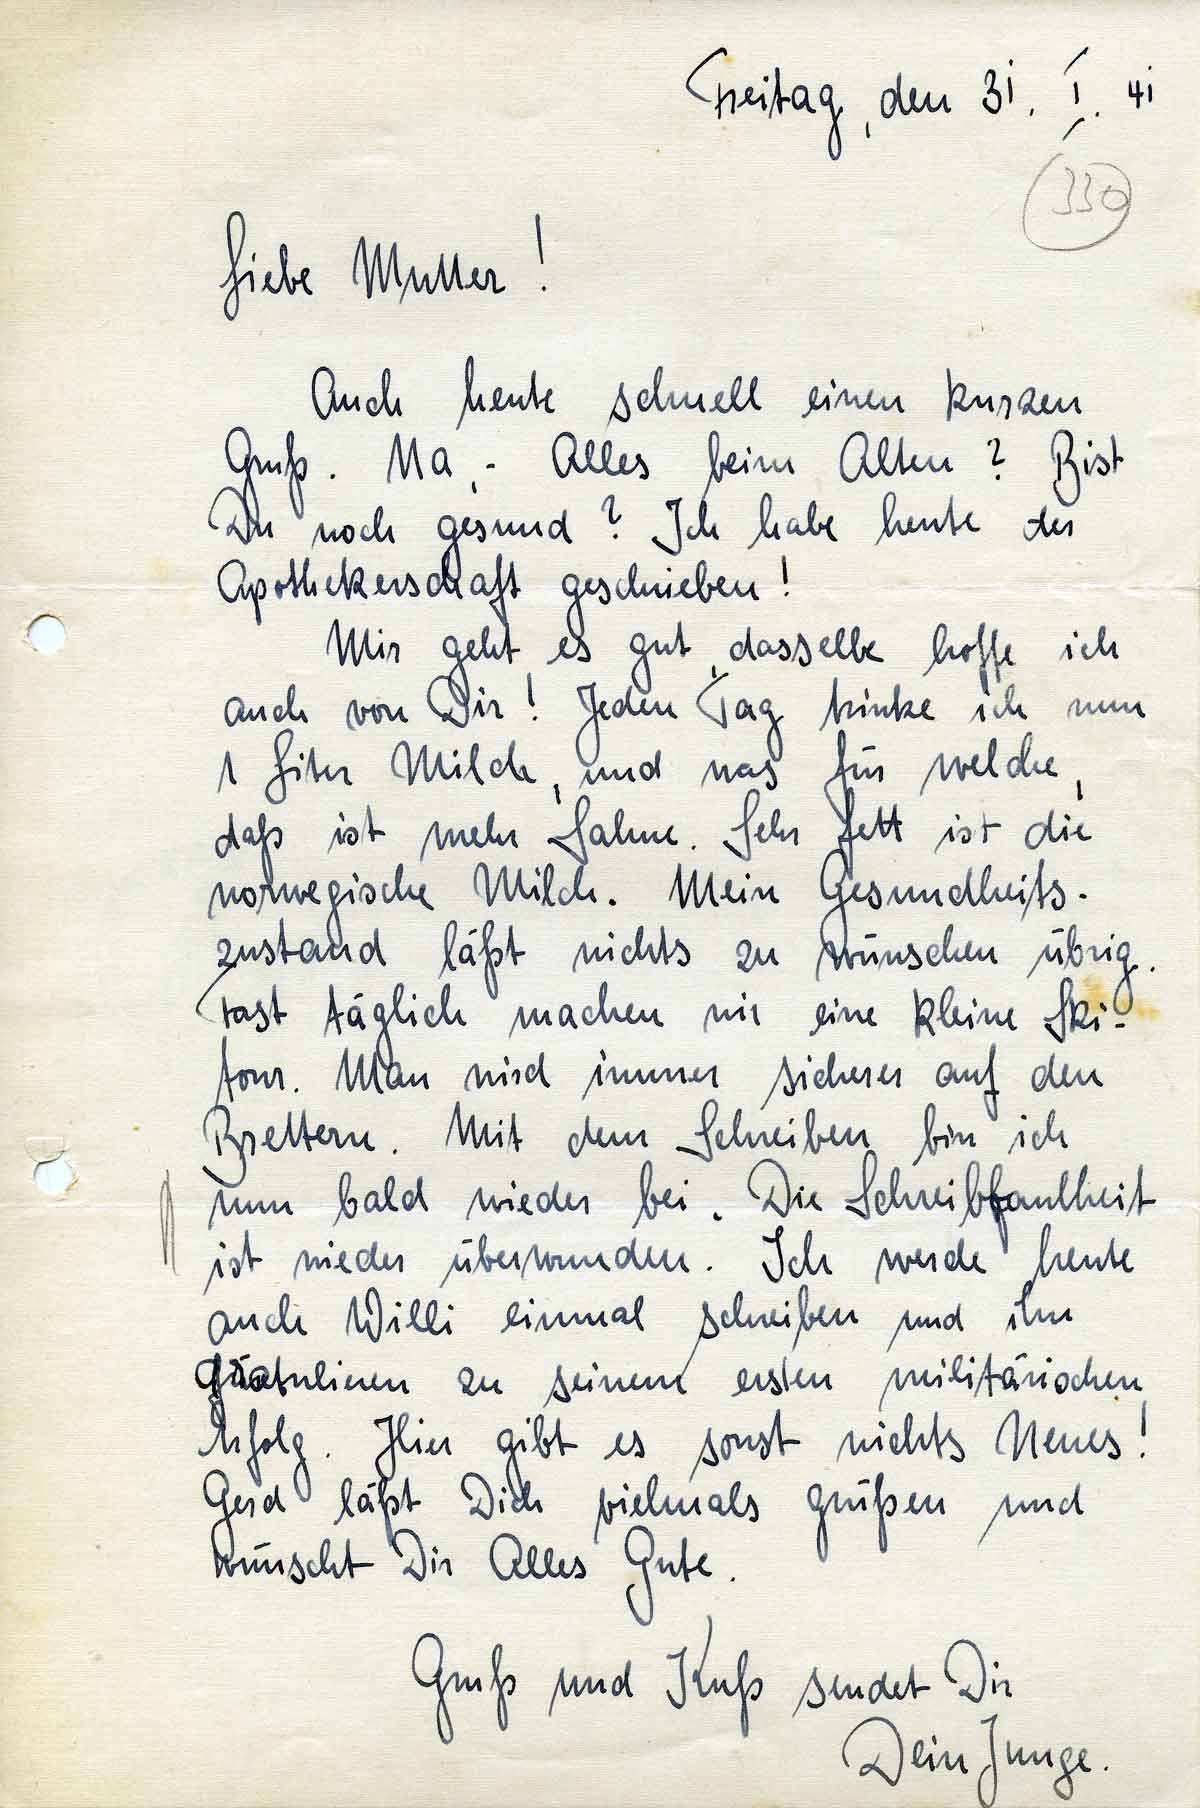 Freitag, den 31. I. 41
330
Liebe Mutter!
Auch heute schnell einen kurzen
Gruß. Na, - Alles beim Alten? Bist
Du noch gesund? Ich habe heute der
Apothekerschaft geschrieben!
Mir geht es gut, dasselbe hoffe ich
auch von Dir! Jeden Tag trinke ich nun
1 Liter Milch, und was für welche,
daß ist mehr Sahne. Sehr fett ist die
norwegische Milch. Mein Gesundheits-
zustand läßt nichts zu wünschen übrig.
Fast täglich machen wir eine kleine Ski-
tour. Man wird immer sicherer auf den
Brettern. Mit dem Schreiben bin ich
nun bald wieder bei. Die Schreibfaulheit
ist wieder überwunden. Ich werde heute
auch Willi einmal schreiben und ihm
gratulieren zu seinem ersten militärischen
Erfolg. Hier gibt es sonst nichts Neues!
Gerd läßt Dich vielmals grüßen und
wünscht Dir Alles Gute.
Gruß und Kuß sendet Dir
Dein Junge.